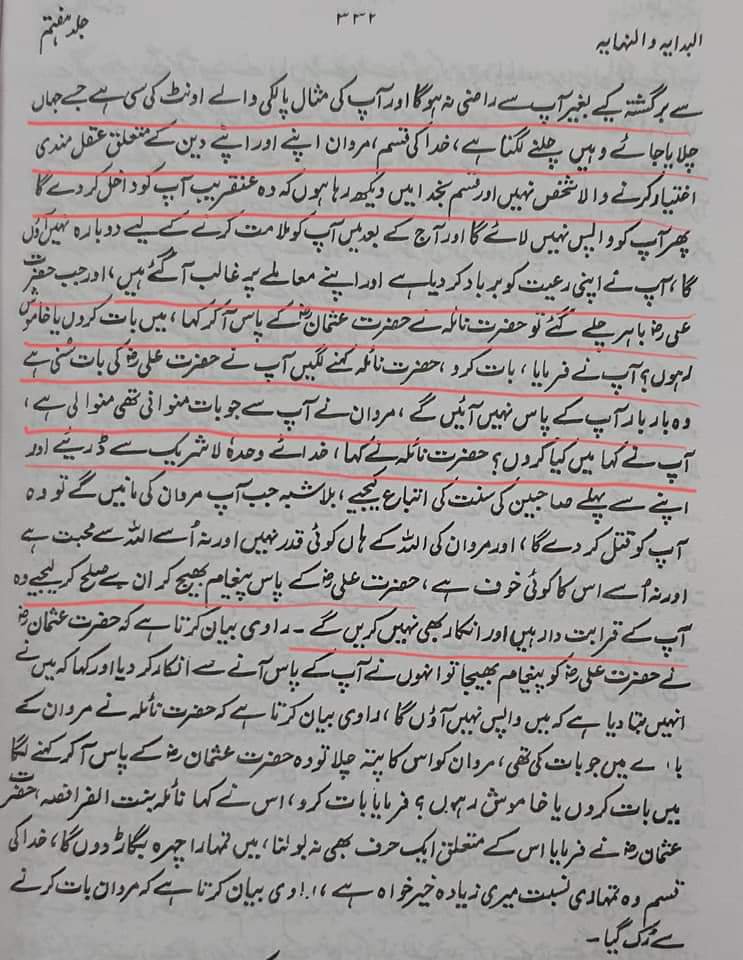 البدایہ والنہایہ
۳۳۲
جلد ہفتم
سے برگشتہ کیے بغیر آپ سے راضی نہ ہوگا اور آپ کی مثال پالکی والے اونٹ کی سی ہے جسے جہاں
چلایا جائے وہیں چلنے لگتا ہے، خدا کی قسم، مروان اپنے اور اپنے دین کے متعلق عقل مندی
اختیار کرنے والا شخص نہیں اور قسم بخدا میں دیکھ رہا ہوں کہ وہ عنقریب آپ کو داخل کر دے گا
پھر آپ کو واپس نہیں لائے گا اور آج کے بعد میں آپ کو ملامت کرنے کے لیے دوبارہ نہیں آؤں
گا، آپ نے اپنی رعیت کو برباد کر دیا ہے اور اپنے معاملے پر غالب آگئے ہیں، اور جب حضرت
علی رضؓ باہر چلے گئے تو حضرت نائلہ نے حضرت عثمان رضؓ کے پاس آکر کہا، میں بات کروں یا خاموش
رہوں؟ آپ نے فرمایا، بات کرو، حضرت نائلہ کہنے لگیں آپ نے حضرت علی رضؓ کی بات سُنی ہے
وہ بار بار آپ کے پاس نہیں آئیں گے، مروان نے آپ سے جو بات منوانی تھی منوالی ہے،
آپ نے کہا میں کیا کروں؟ حضرت نائلہ نے کہا، خدائے وحدہٗ لاشریک سے ڈریئے اور
اپنے سے پہلے صاحبین کی سنت کی اتباع کیجیے، بلاشبہ جب آپ مروان کی مانیں گے تو وہ
آپ کو قتل کر دے گا، اور مروان کی اللہ کے ہاں کوئی قدر نہیں اور نہ اُسے اللہ سے محبت ہے
اور نہ اُسے اس کا کوئی خوف ہے، حضرت علی رضؓ کے پاس پیغام بھیج کر ان سے صلح کر لیجیے وہ
آپ کے قرابت دار ہیں اور انکار بھی نہیں کریں گے۔ راوی بیان کرتا ہے کہ حضرت عثمان رضؓ
نے حضرت علی رضؓ کو پیغام بھیجا تو انہوں نے آپ کے پاس آنے سے انکار کر دیا اور کہا کہ میں نے
انہیں بتا دیا ہے کہ میں واپس نہیں آؤں گا، راوی بیان کرتا ہے کہ حضرت نائلہ نے مروان کے
بارے میں جو بات کی تھی، مروان کو اس کا پتہ چلا تو وہ حضرت عثمان رضؓ کے پاس آکر کہنے لگا
میں بات کروں یا خاموش رہوں؟ فرمایا بات کرو، اس نے کہا نائلہ بنت الفرافصہ، حضرت
عثمان رضؓ نے فرمایا اس کے متعلق ایک حرف بھی نہ بولنا، میں تمہارا چہرہ بگاڑ دوں گا، خدا کی
قسم وہ تمہاری نسبت میری زیادہ خیر خواہ ہے، راوی بیان کرتا ہے کہ مروان بات کرنے
سے رُک گیا۔